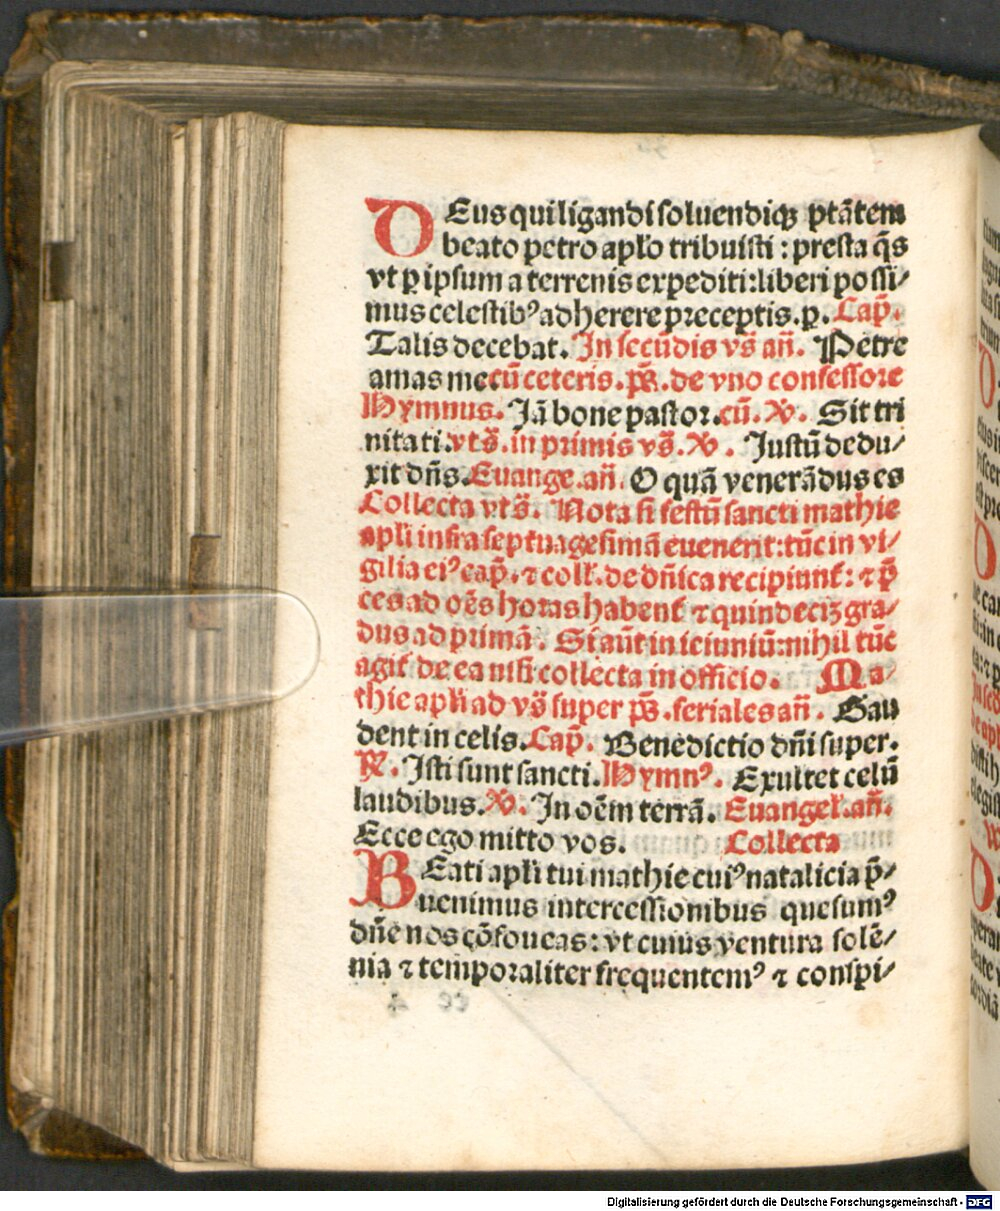 DEus qui ligandi soluendiqꝫ ptātem
beato petro aplo tribuisti : presta q̄s
vt ꝑ ipsum a terrenis expediti:liberi possi/
mus celestibꝰ adherere preceptis.ꝑ. Cap̄.
Talis decebat. In secūdis vs̄ añ. Petre
amas me cū ceteris. ps̄. de vno confessore
Hymnus. Jā bone pastor. cū. ꝟ. Sit tri
nitati. vts̄. in primis vs̄. ꝟ. Justū dedu/
xit dn̄s. Euange. añ. O quā venerādus es
Collecta vts̄. Nota si festū sancti mathie
apli infra septuagesimā euenerit: tūc in vi/
gilia eiꝰ cap̄. ⁊ coll. de dn̄ica recipiunt̄: ⁊ p̄
ces ad oēs horas habent̄ ⁊ quindecīꝫ gra/
dus ad primā. Si aūt in ieiuniū: nihil tūc
agit̄ de ea nisi collecta in officio. Ma/
thie apli ad vs̄ super ps̄. feriales añ. Gau
dent in celis. Cap̄. Benedictio dn̄i super.
℟. Isti sunt sancti. Hymnꝰ. Exultet celū
laudibus. ꝟ. In oēm terrā. Euangel. añ.
Ecce ego mitto vos. Collecta
BEati apli tui mathie cuiꝰ natalicia p̄/
uenimus intercessionibus quesumꝰ
dn̄e nos cōfoueas: vt cuius ventura solē/
nia ⁊ temporaliter frequentemꝰ ⁊ conspi/
Digitalisierung gefördert durch die Deutsche Forschungsgemeinschaft - DFG